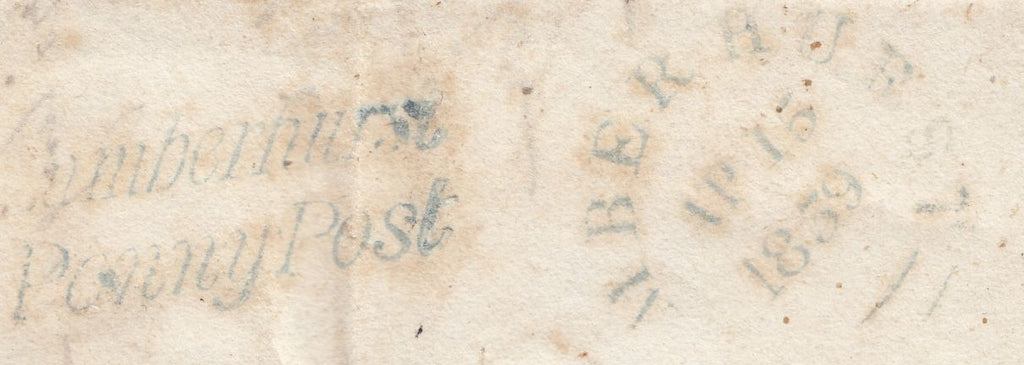 Lamberhurst
Penny Post
MBERHURST
AP 15
1839